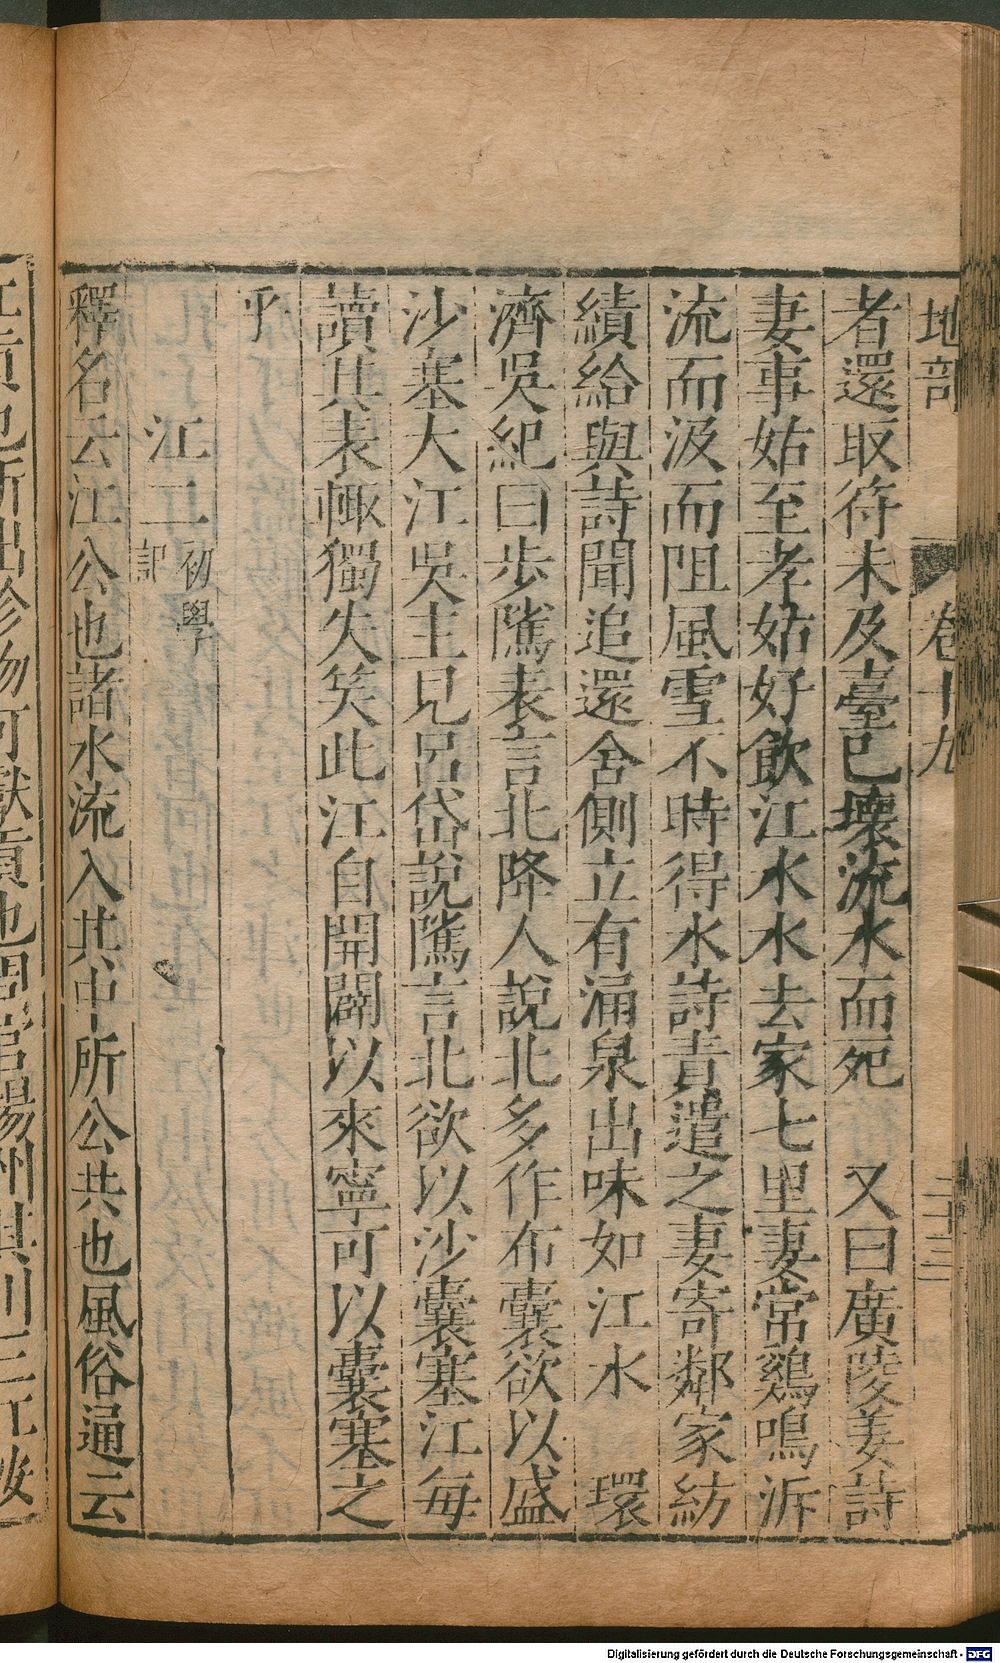 地部 卷十九 二十三
者還取符未及臺已壞流水而死 又曰廣陵姜詩
妻事姑至孝姑好飲江水水去家七里妻常鷄鳴泝
流而汲而阻風雪不時得水詩責遣之妻寄鄰家紡
績給與詩聞追還舍側立有涌泉出味如江水 環
濟吳紀曰步騭表言北降人說北多作布囊欲以盛
沙塞大江吳主見呂岱說騭言北欲以沙囊塞江每
讀其表輙獨失笑此江自開闢以來寧可以囊塞之
乎
江二 初學記
釋名云江公也諸水流入其中所公共也風俗通云
江貢也所出珍物可獻貢也周官揚州其川三江按
Digitalisierung gefördert durch die Deutsche Forschungsgemeinschaft - DFG